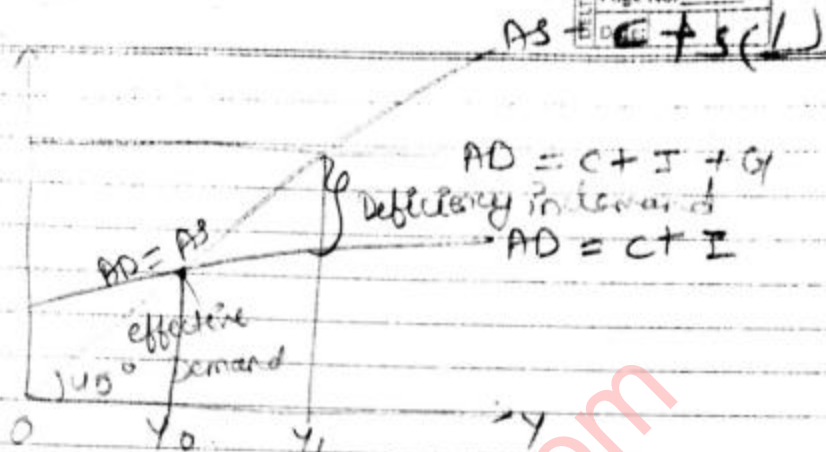 AS = C + S (L)
AD = C + I + G
Deficiency in demand
AD = AS
AD = C + I
effective
Demand
45°
O Y0 Y1 Y
om